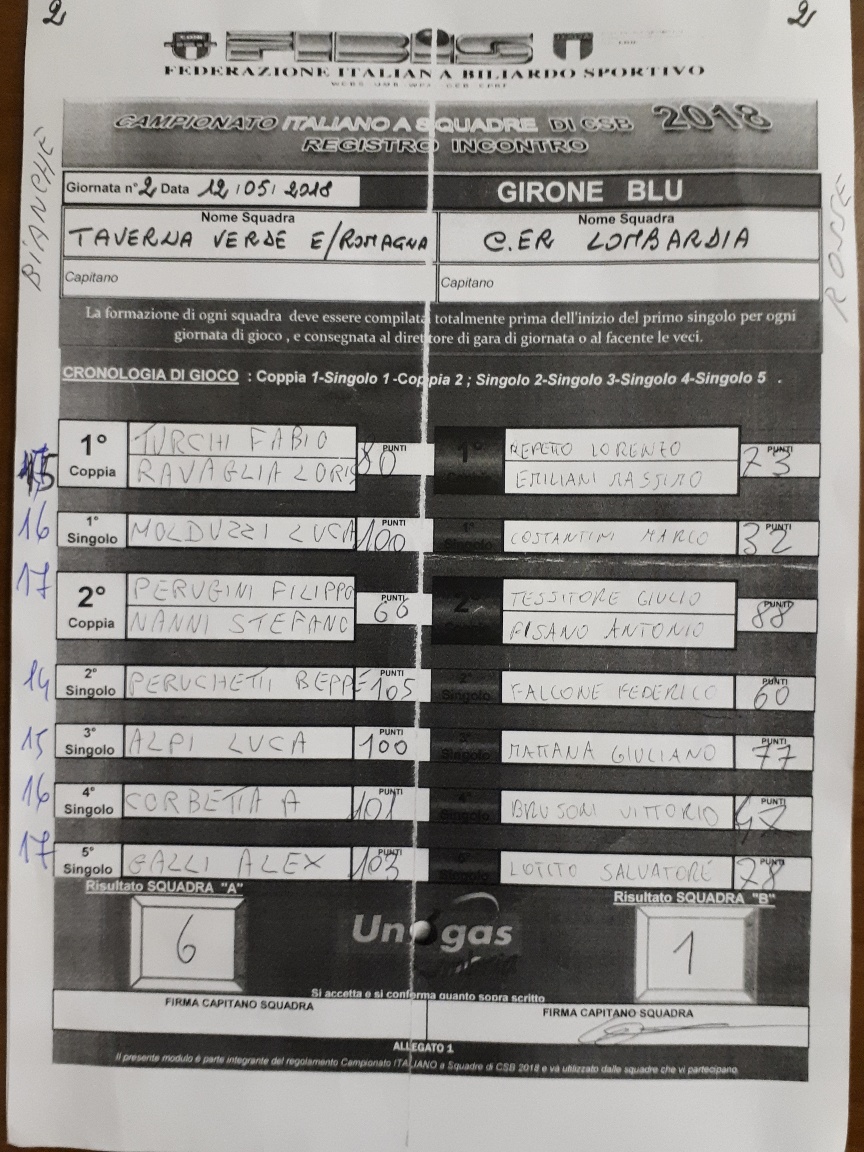 2 2
FIBIS
FEDERAZIONE ITALIANA BILIARDO SPORTIVO
CAMPIONATO ITALIANO A SQUADRE DI CSB 2018
REGISTRO INCONTRO
BIANCHE
ROSSE
Giornata n° 2 Data 12/05/2018 GIRONE BLU
Nome Squadra Nome Squadra
TAVERNA VERDE E/ROMAGNA C.ER LOMBARDIA
Capitano Capitano
La formazione di ogni squadra deve essere compilata totalmente prima dell'inizio del primo singolo per ogni
giornata di gioco , e consegnata al direttore di gara di giornata o al facente le veci.
CRONOLOGIA DI GIOCO : Coppia 1-Singolo 1 -Coppia 2 ; Singolo 2-Singolo 3-Singolo 4-Singolo 5 .
15 1° Coppia TURCHI FABIO PUNTI 80 1° REPETTO LORENZO PUNTI 73
RAVAGLIA LORIS EMILIANI MASSIMO
16 1° Singolo MOLDUZZI LUCA PUNTI 100 1° Singolo COSTANTINI MARCO PUNTI 32
17 2° Coppia PERUGINI FILIPPO PUNTI 66 2° TESSITORE GIULIO PUNTI 88
NANNI STEFANO PISANO ANTONIO
14 2° Singolo PERUCHETTI BEPPE PUNTI 105 2° Singolo FALCONE FEDERICO PUNTI 60
15 3° Singolo ALPI LUCA PUNTI 100 3° Singolo MATTANA GIULIANO PUNTI 77
16 4° Singolo CORBETTA A PUNTI 101 4° Singolo BRUSONI VITTORIO PUNTI
17 5° Singolo GALLI ALEX PUNTI 103 LOTITO SALVATORE PUNTI 78
Risultato SQUADRA "A" Risultato SQUADRA "B"
6 Unogas 1
Si accetta e si conferma quanto sopra scritto
FIRMA CAPITANO SQUADRA FIRMA CAPITANO SQUADRA
ALLEGATO 1
Il presente modulo è parte integrante del regolamento Campionato ITALIANO a Squadre di CSB 2018 e và utilizzato dalle squadre che vi partecipano.